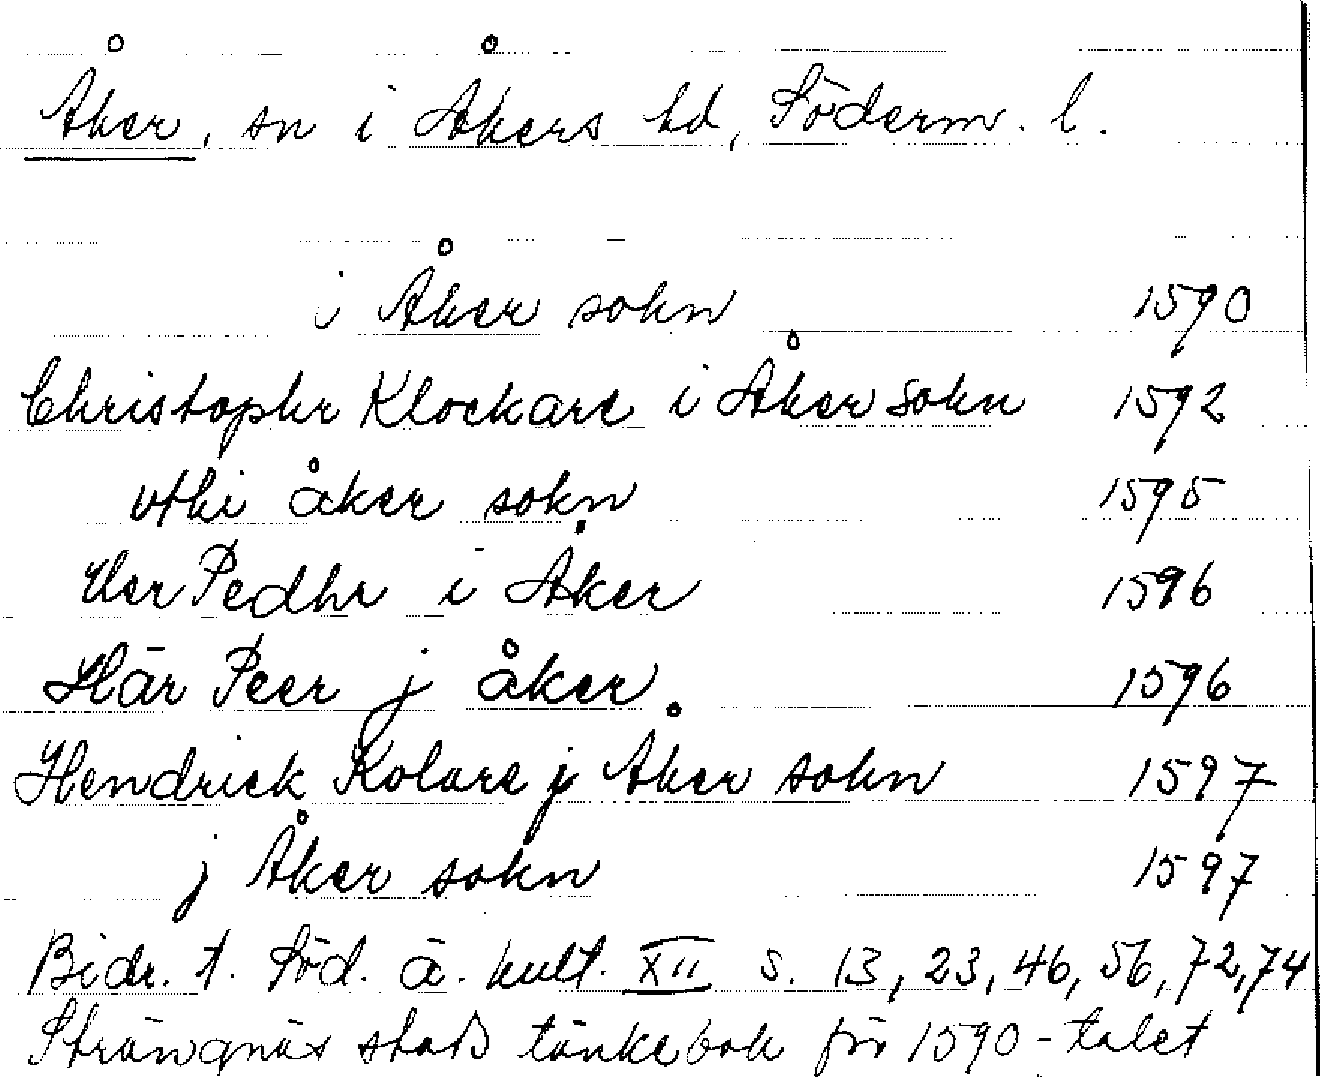 Åker, sn i Åkers hd, Söderm. l.
i Åker sokn 1590
Christophr Klockare i Åker sokn 1592
vthi åker sokn 1595
Her Pedhr i Åker 1596
Här Peer j åker 1596
Hendrick Kolare j Åker sokn 1597
j Åker sokn 1597
Bidr. t. Söd. ä. kult. XII s. 13, 23, 46, 56, 72, 74
Strängnäs stads tänkebok för 1590-talet